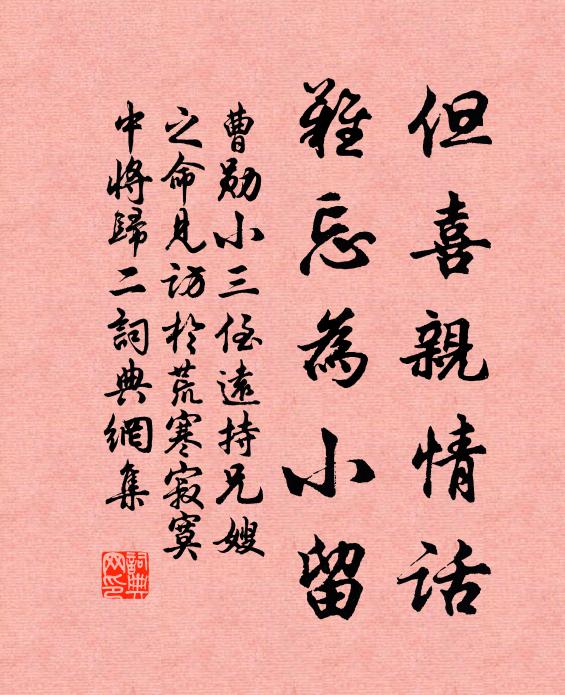 但喜親情話
難忘為小留
曹勛小三侄遠持兄嫂
之命見訪於荒寒寂寞
中將歸二詞典網集
詞典網印